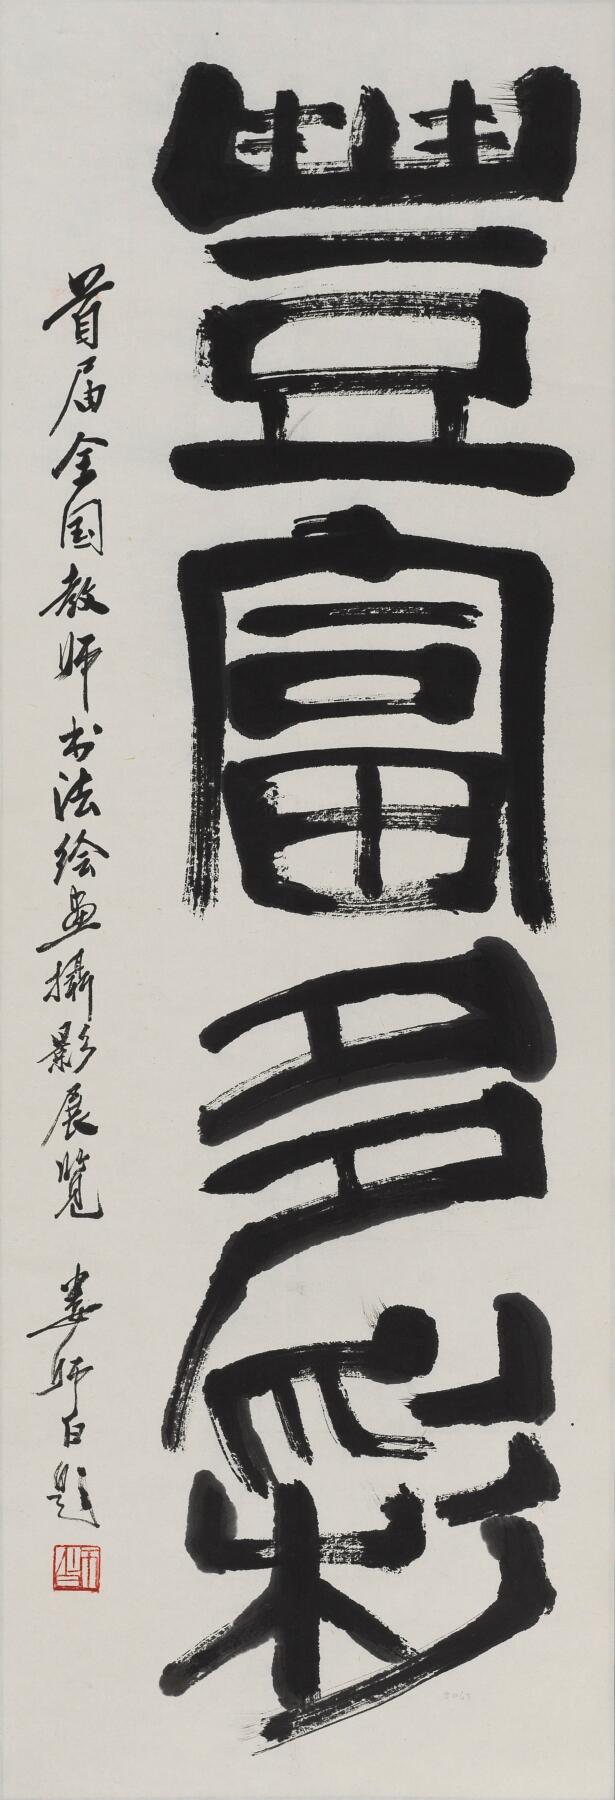 豐富多彩
首届全国教师书法绘画攝影展览 娄师白题
师白